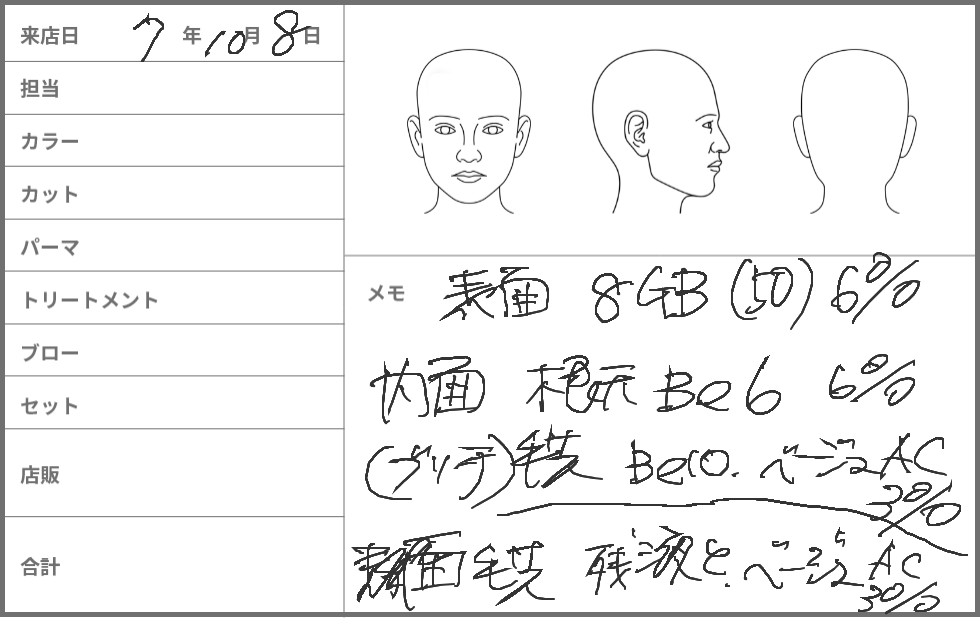 来店日 7年10月8日
担当
カラー
カット
パーマ
トリートメント
ブロー
セット
店販
合計
メモ 表面 8GB (50) 6%
内面 根元 Be6 6%
(ブリーチ)毛先 Be10. ベージュAC
3%
表面毛先 残液と ベージュAC
3%